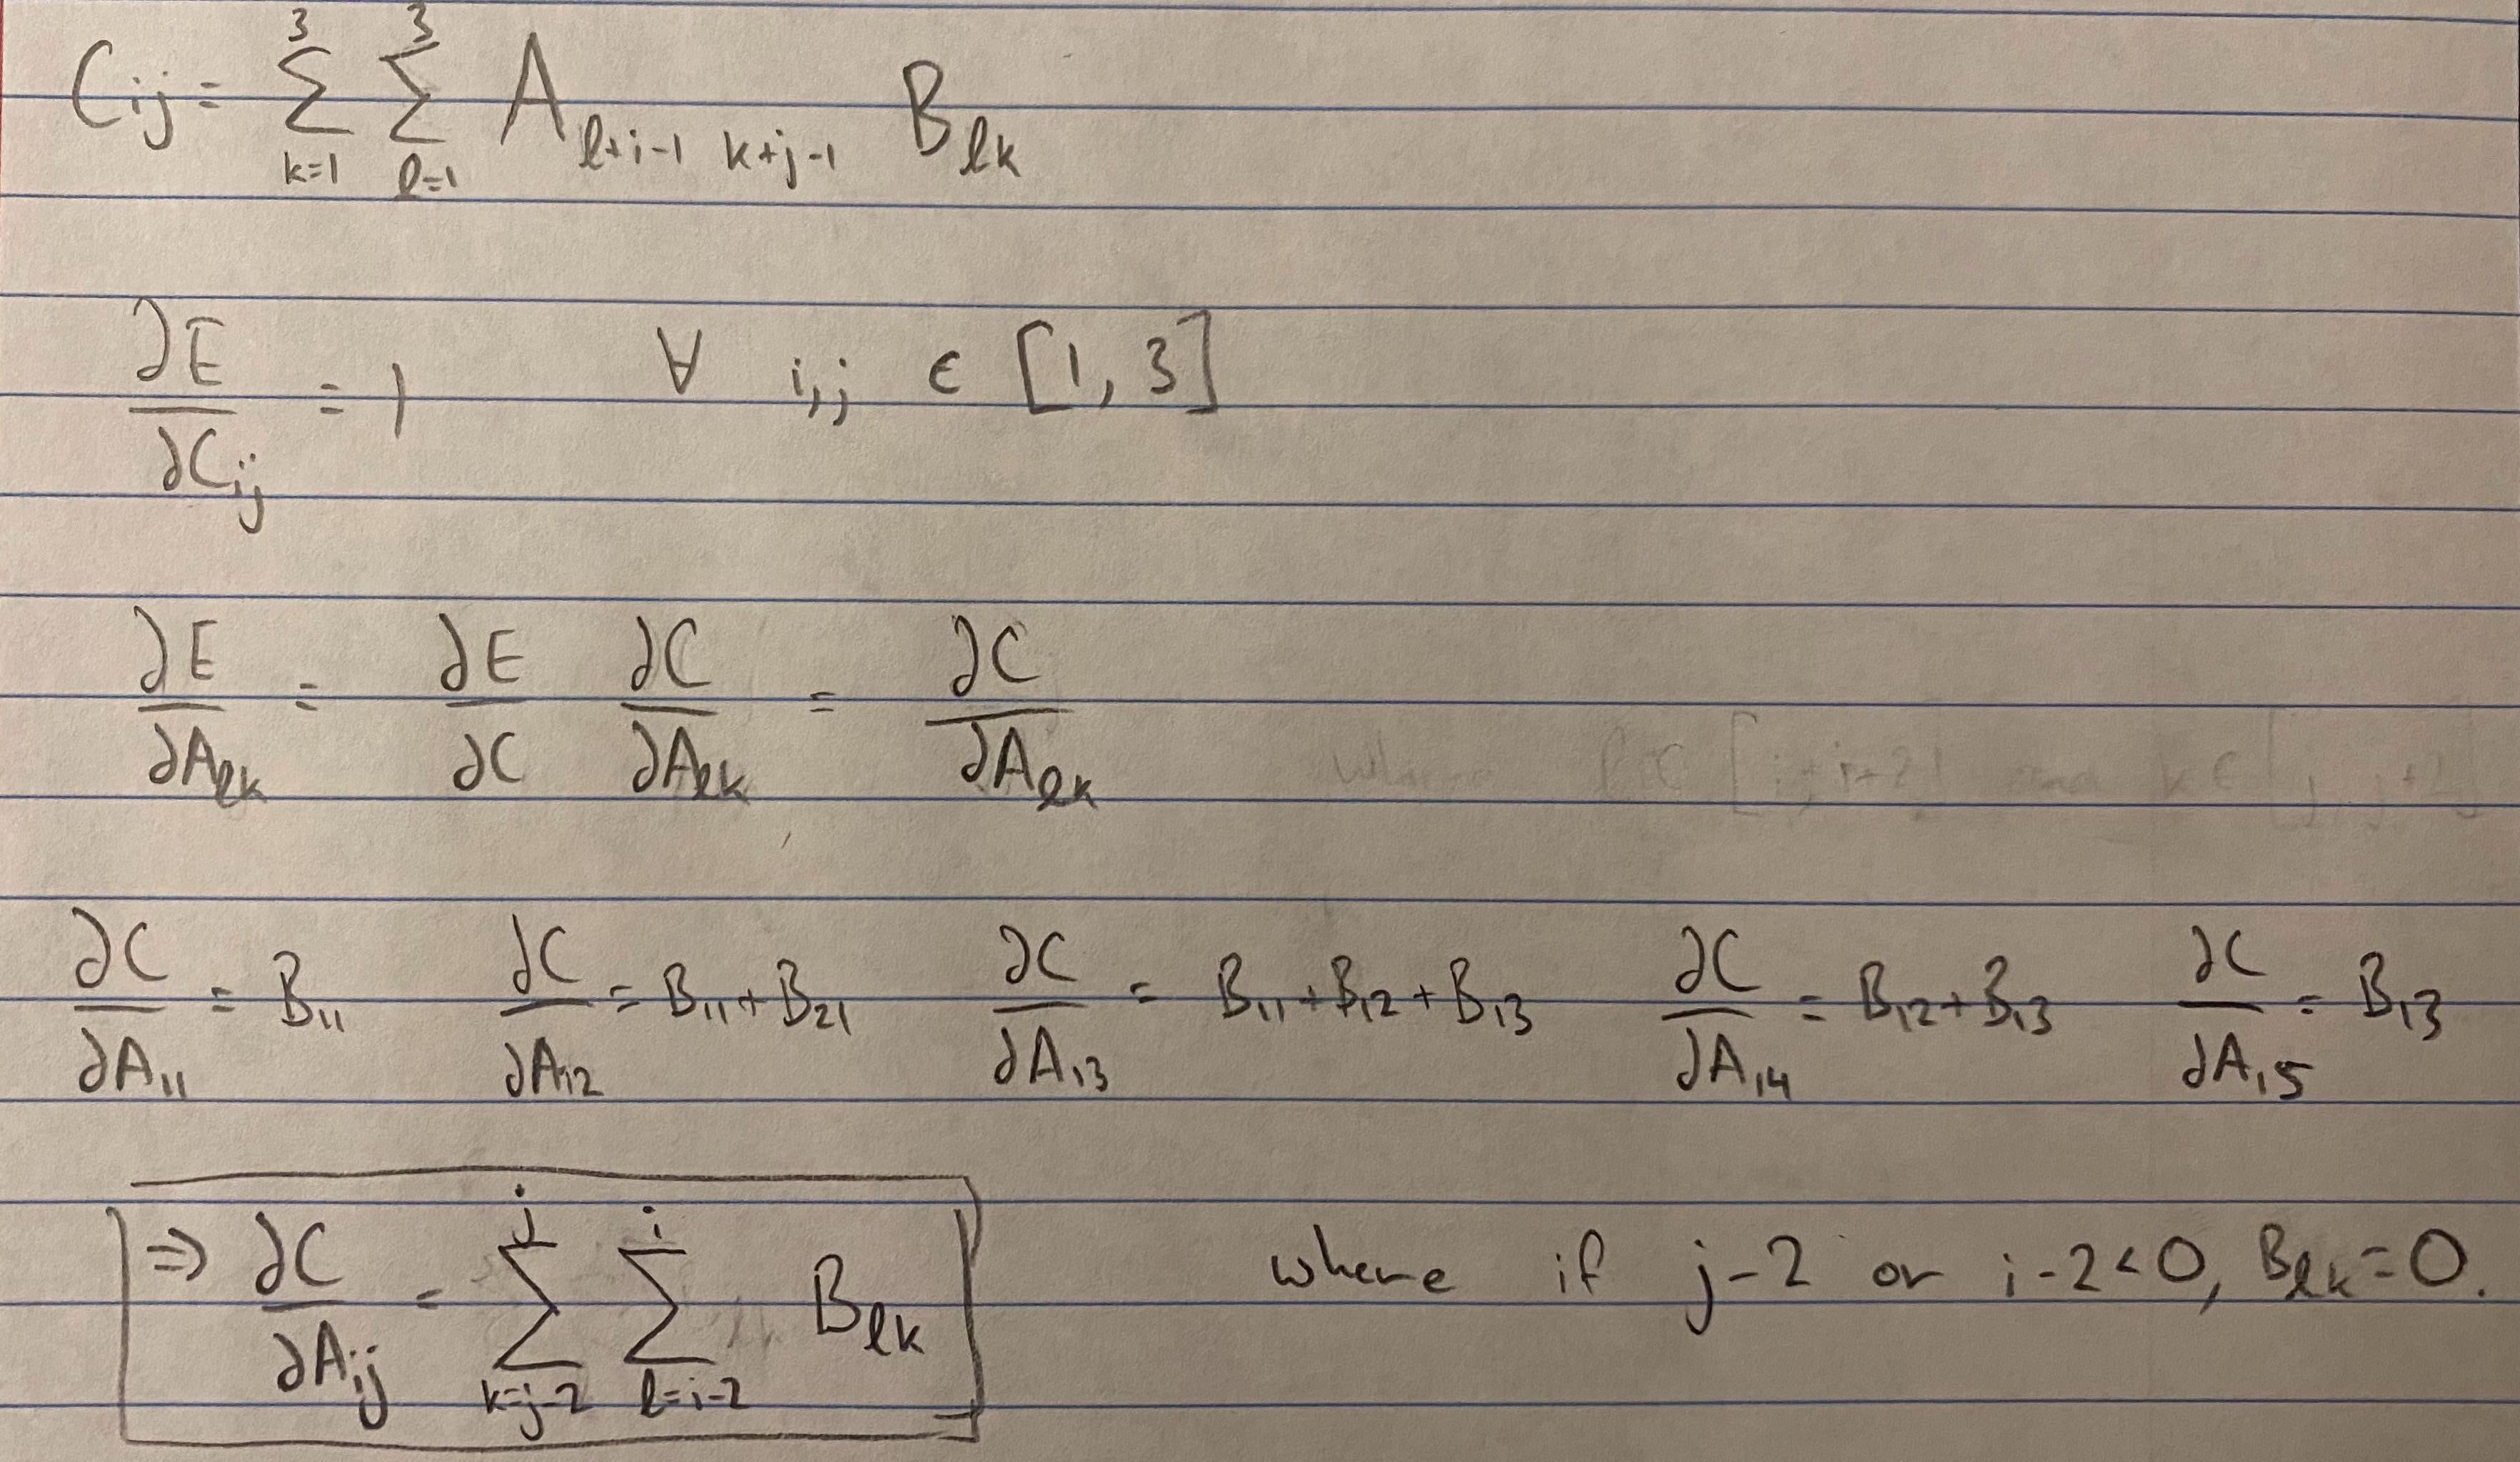 C_{ij} = \sum_{k=1}^{3} \sum_{l=1}^{3} A_{l+i-1 k+j-1} B_{lk}
\frac{∂E}{∂C_{ij}} = 1 ∀ i,j ∈ [1, 3]
\frac{∂E}{∂A_{lk}} = \frac{∂E}{∂C} \frac{∂C}{∂A_{lk}} = \frac{∂C}{∂A_{lk}} where l ∈ [i, i+2] and k ∈ [j, j+2]
\frac{∂C}{∂A_{11}} = B_{11} \frac{∂C}{∂A_{12}} = B_{11} + B_{21} \frac{∂C}{∂A_{13}} = B_{11} + B_{12} + B_{13} \frac{∂C}{∂A_{14}} = B_{12} + B_{13} \frac{∂C}{∂A_{15}} = B_{13}
⇒ \frac{∂C}{∂A_{ij}} = \sum_{k=j-2}^{j} \sum_{l=i-2}^{i} B_{lk} where if j-2 or i-2<0, B_{lk}=0.